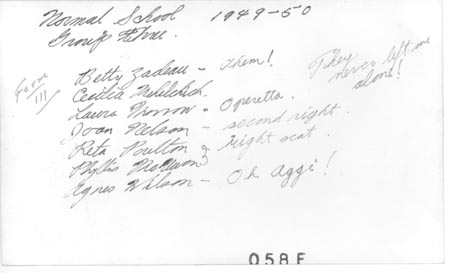 Normal School 1949-50
Group Three.
Form III
Betty Zadeau - Ahem!
Cecilia
Laura Morrow - Operetta.
Joan Nelson - second right.
Reta Poulton - right seat.
Phyllis
Agnes Wilson - Oh Aggi!
They never left me alone!
058F